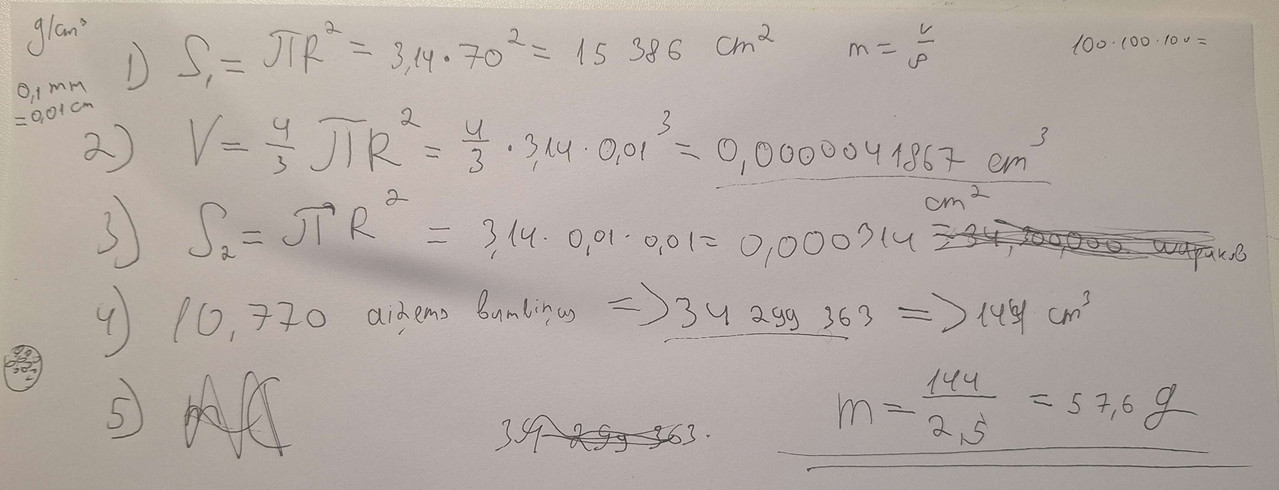 g/cm³
1) S₁ = πR² = 3,14 · 70² = 15 386 cm²
m = V/ρ
100·100·100=
0,1 mm
= 0,01 cm
2) V = 4/3 πR² = 4/3 · 3,14 · 0,01³ = 0,0000041867 cm³
3) S₂ = πR² = 3,14 · 0,01 · 0,01 = 0,000314 cm² = 34,300,000 шариков
4) 10,770 aizņems bumbiņas => 34 299 363 => 144 cm³
5)
34 299 363.
m = 144/2,5 = 57,6 g